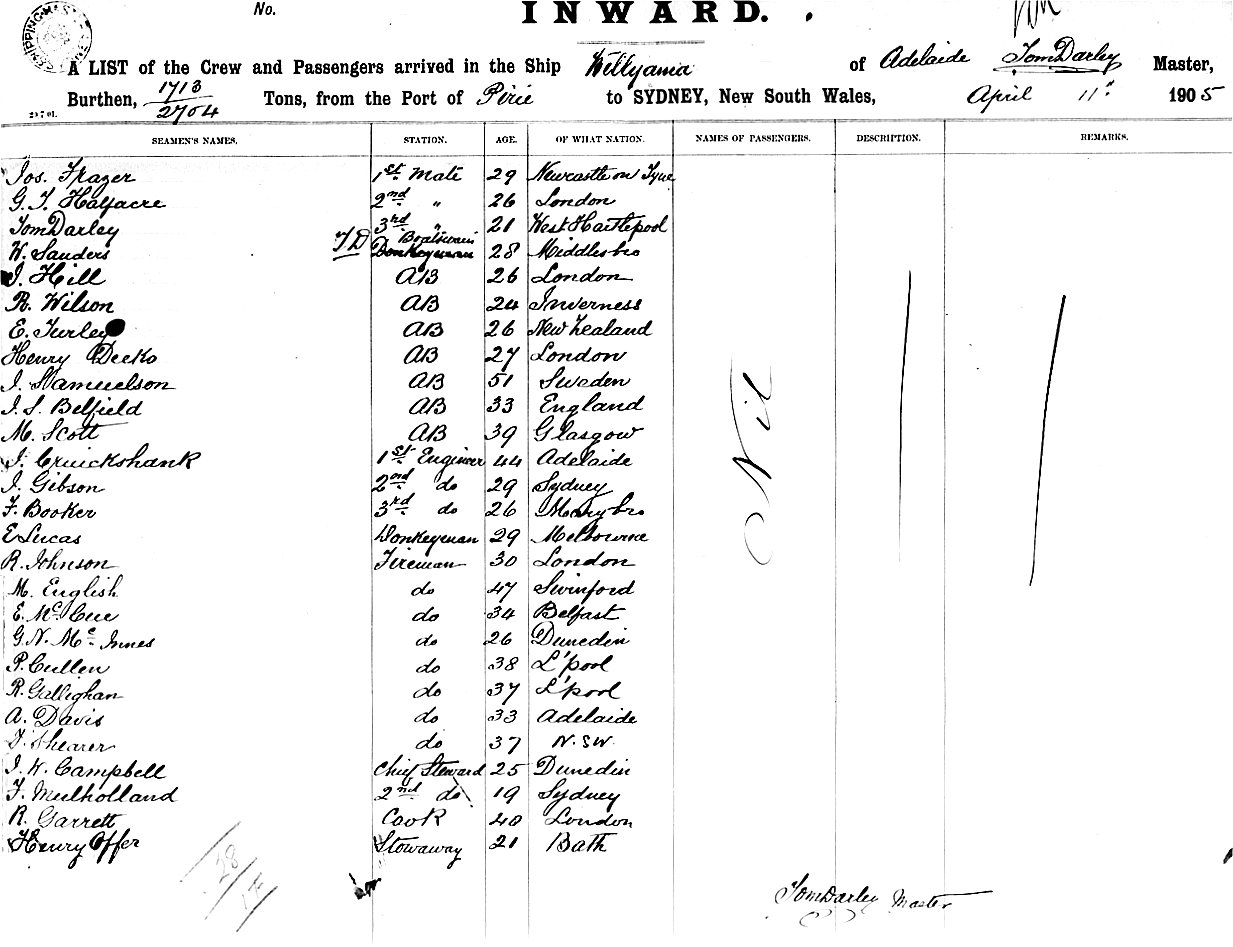 No.
INWARD.
A LIST of the Crew and Passengers arrived in the Ship Willyama of Adelaide Tom Darley Master,
Burthen, 1713/2704 Tons, from the Port of Pirie to SYDNEY, New South Wales, April 11th 1905
SEAMEN'S NAMES. STATION. AGE. OF WHAT NATION. NAMES OF PASSENGERS. DESCRIPTION. REMARKS.
Jos. Frazer 1st Mate 29 Newcastle on Tyne
G. T. Halfacre 2nd " 26 London
Tom Darley 3rd " 21 West Hartlepool
W. Sanders TD Boatswain Donkeyman 28 Middlesbro
J. Hill AB 26 London
R. Wilson AB 24 Inverness
E. Turley AB 26 New Zealand
Henry Decko AB 27 London
J. Samuelson AB 51 Sweden
J. S. Belfield AB 33 England
M. Scott AB 39 Glasgow
J. Cruickshank 1st Engineer 44 Adelaide
J. Gibson 2nd do 29 Sydney
F. Booker 3rd do 26 Marybro
E Lucas Donkeyman 29 Melbourne
R. Johnson Fireman 30 London
M. English do 47 Swinford
E. Mc Cue do 34 Belfast
G. N. Mc Innes do 26 Dunedin
P. Cullen do 38 L'pool
R. Gallighan do 37 L'pool
A. Davis do 33 Adelaide
J. Shearer do 37 N.SW.
J. W. Campbell Chief Steward 25 Dunedin
F. Mulholland 2nd do 19 Sydney
R. Garrett Cook 40 London
Henry Offer Stowaway 21 Bath
Nil
Tom Darley Master